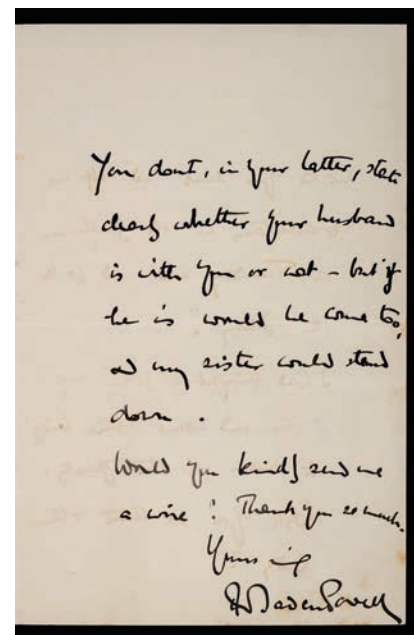 You dont, in your letter, state
clearly whether your husband
is with you or not – but if
he is would he come too,
and my sister could stand
down.
Would you kindly send me
a wire? Thank you so much.
Yours
Baden Powell